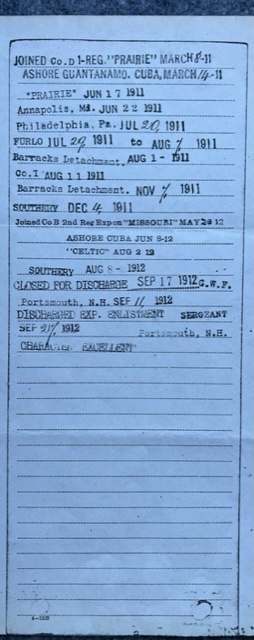 JOINED Co.D 1-REG."PRAIRIE" MARCH 8-11
ASHORE GUANTANAMO. CUBA, MARCH 14-11
"PRAIRIE" JUN 17 1911
Annapolis, Md. JUN 22 1911
Philadelphia, Pa. JUL 20 1911
FURLO JUL 20 1911 to AUG 7 1911
Barracks Detachment. AUG 1- 1911
Co.I AUG 11 1911
Barracks Detachment. NOV 7 1911
SOUTHERY DEC 4 1911
Joined Co B 2nd Reg Exp on "MISSOURI" MAY 12
ASHORE CUBA JUN 8-12
"CELTIC" AUG 2 12
SOUTHERY AUG 8- 1912
CLOSED FOR DISCHARGE SEP 17 1912 G.W.F.
Portsmouth, N.H. SEP 11 1912
DISCHARGED EXP. ENLISTMENT SERGEANT
SEP 1912 Portsmouth, N.H.
CHARACTER EXCELLENT"